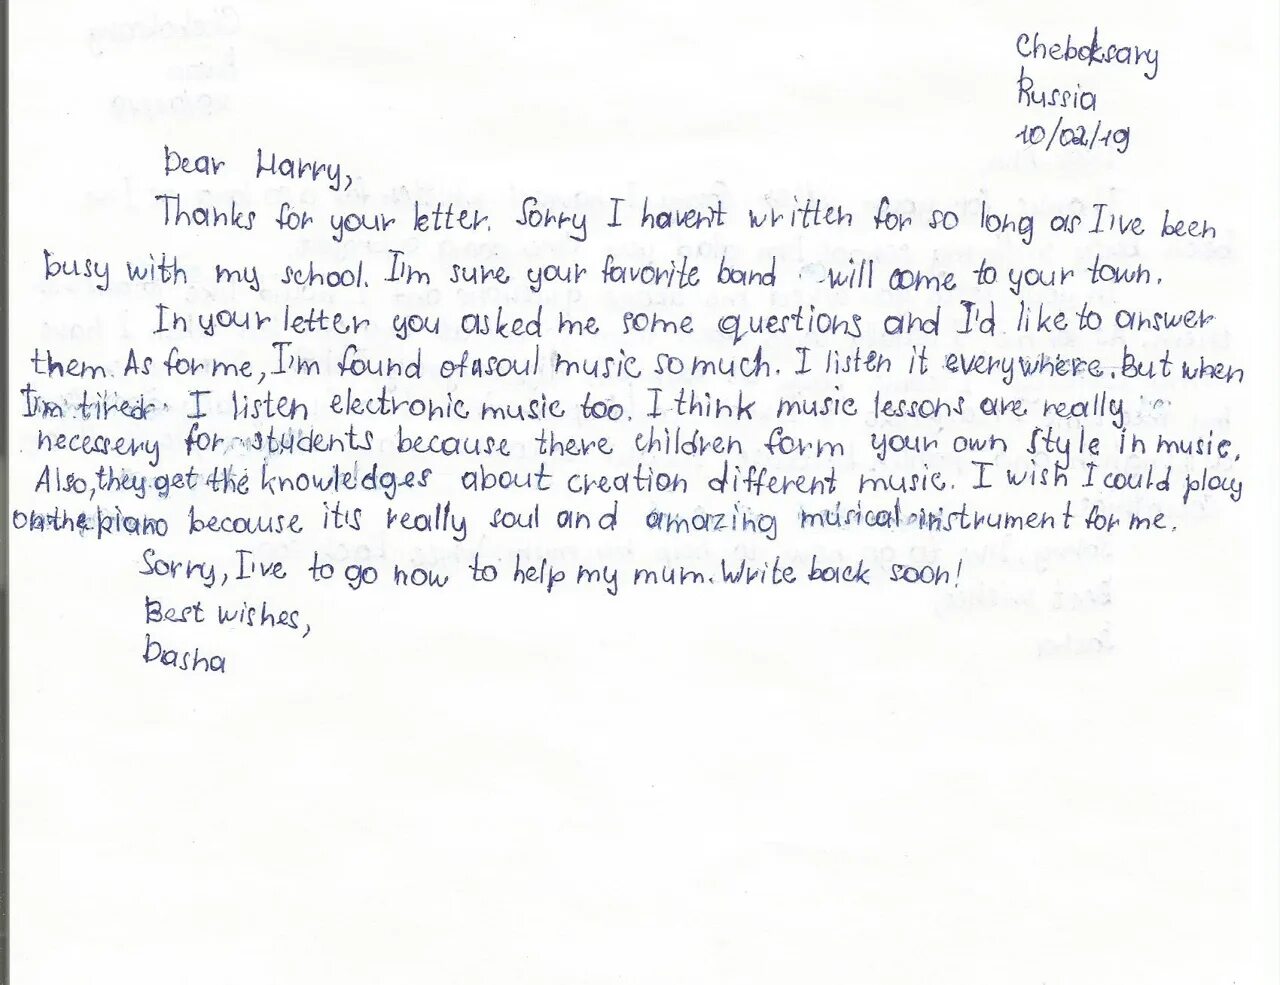 Cheboksary
Russia
10/02/19
Dear Harry,
Thanks for your letter. Sorry I haven't written for so long as I've been
busy with my school. I'm sure your favorite band will come to your town.
In your letter you asked me some questions and I'd like to answer
them. As for me, I'm found of a soul music so much. I listen it everywhere. But when
I'm tired I listen electronic music too. I think music lessons are really
necessery for students because there children form your own style in music.
Also, they get the knowledges about creation different music. I wish I could play
on the piano because it's really soul and amazing musical instrument for me.
Sorry, I've to go now to help my mum. Write back soon!
Best wishes,
Dasha